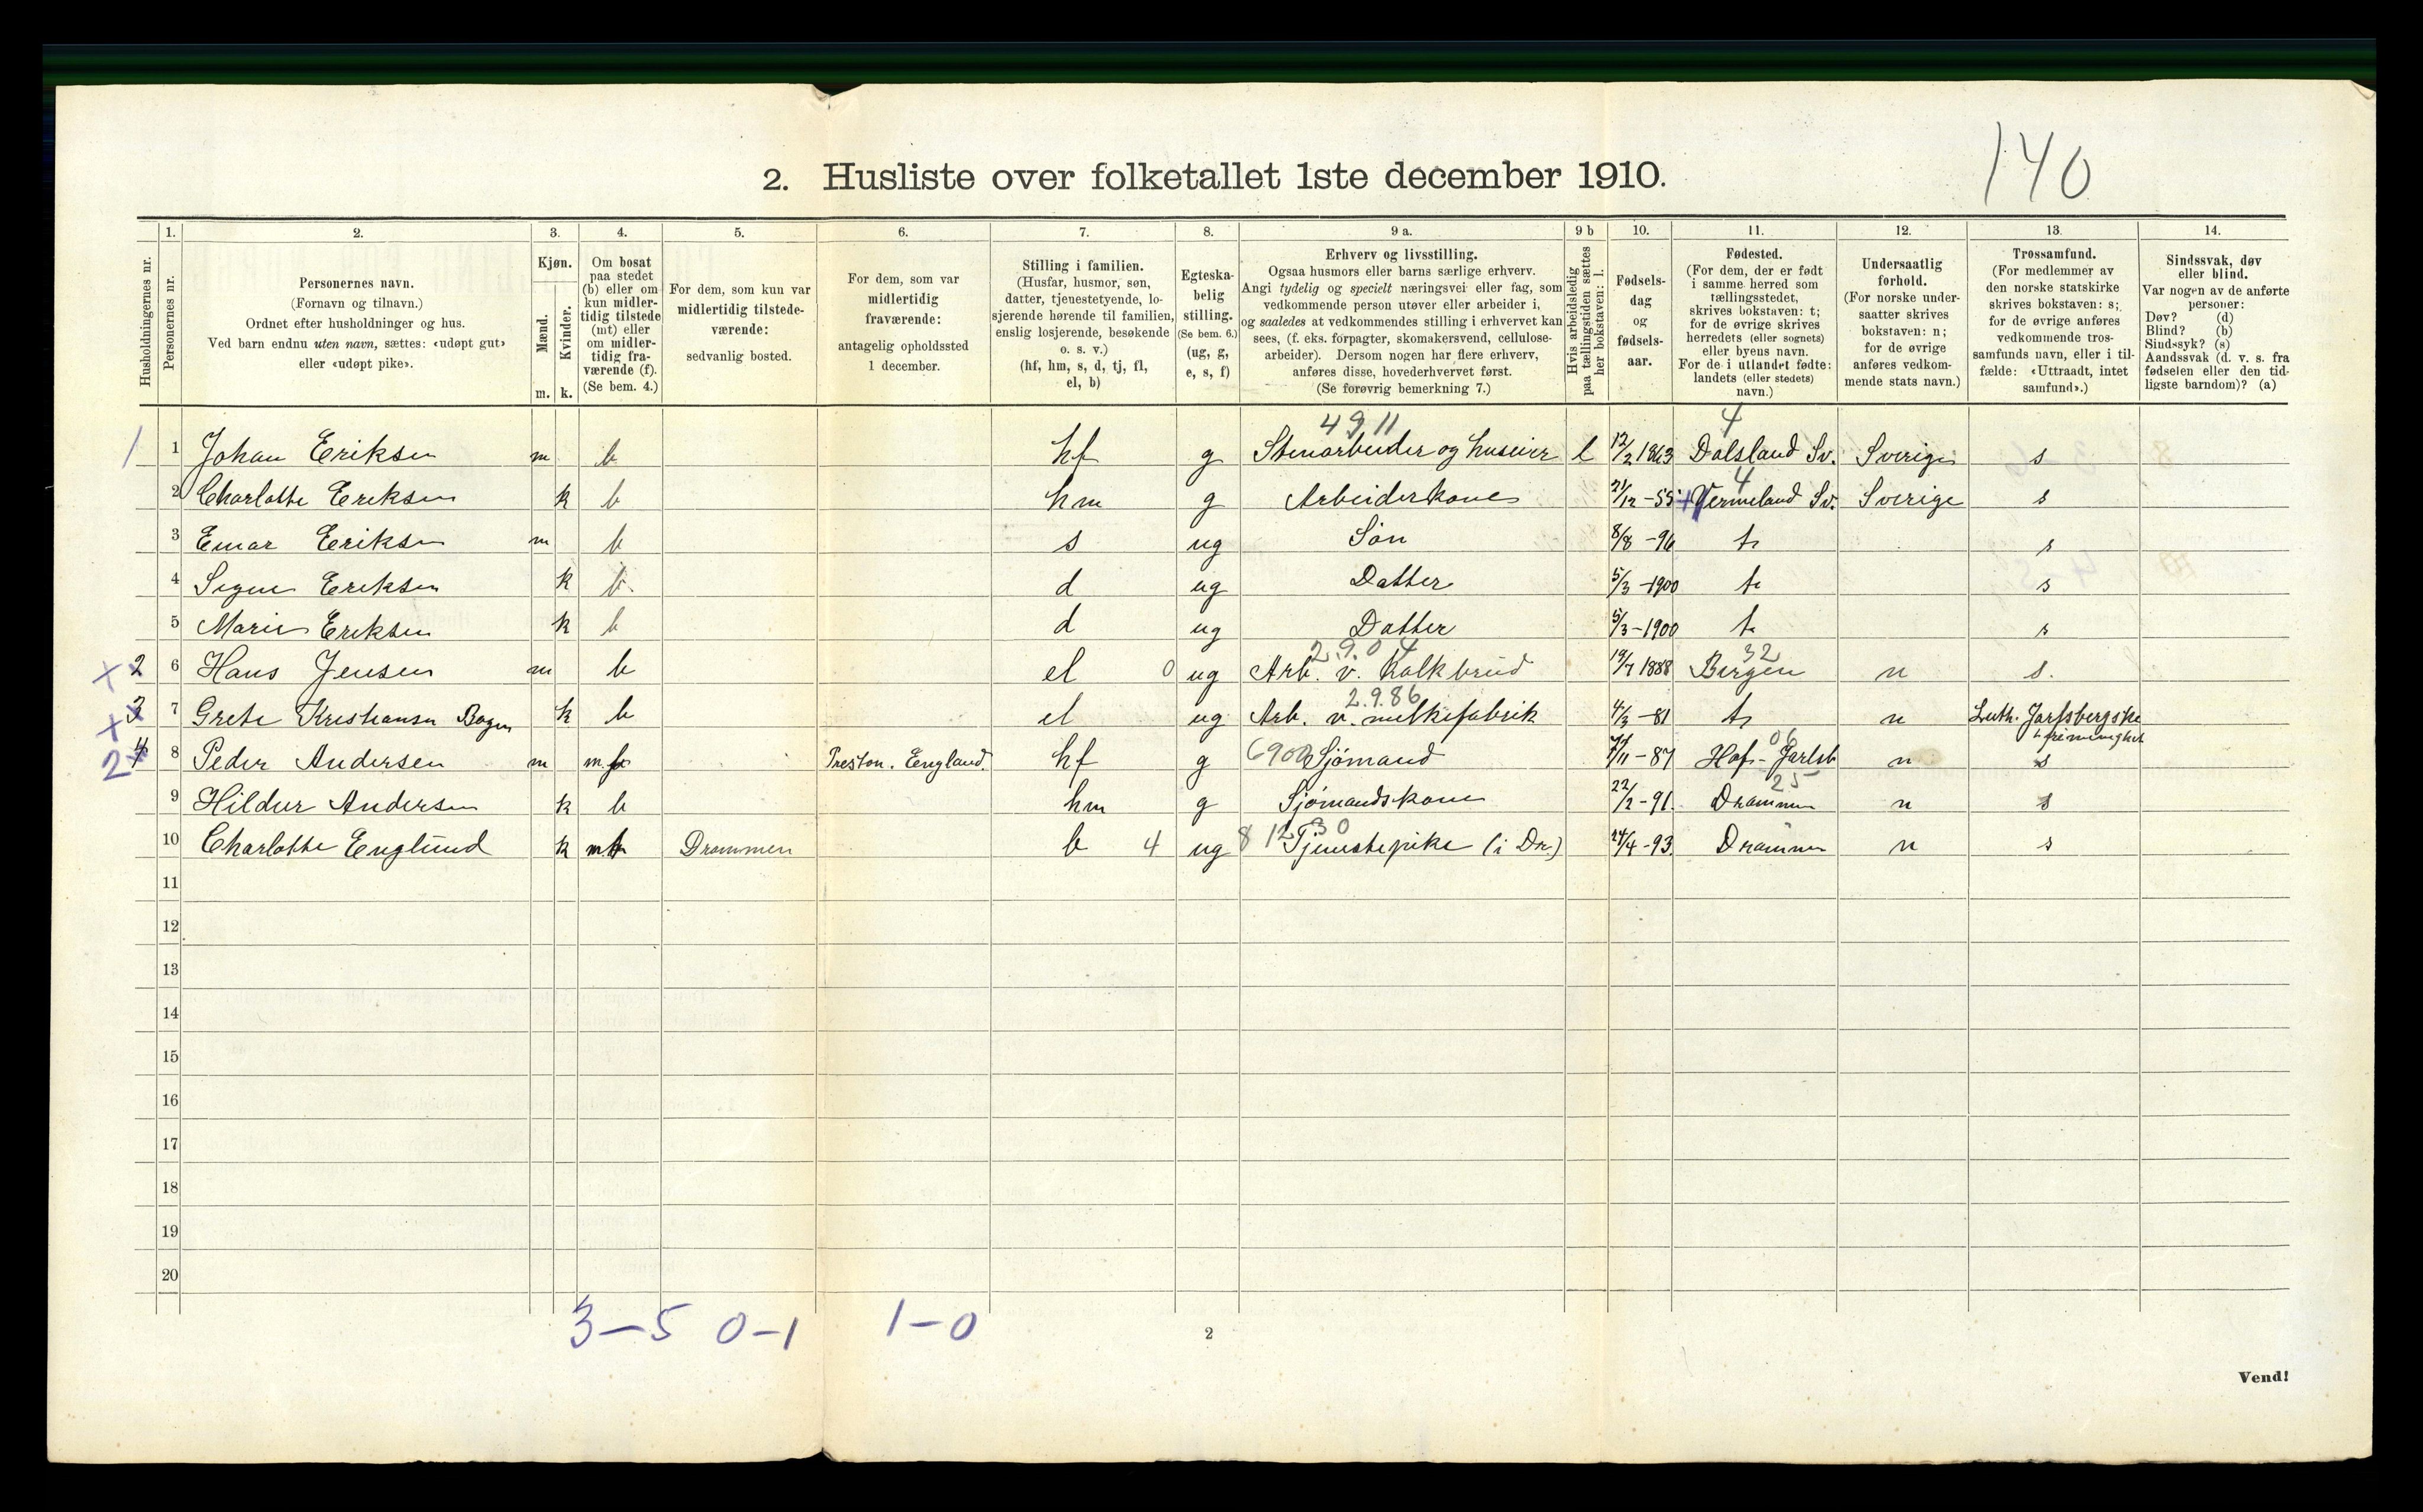 140
2. Husliste over folketallet 1ste december 1910.
Husholdningernes nr.
1. Personernes nr.
2. Personernes navn. (Fornavn og tilnavn.) Ordnet efter husholdninger og hus. Ved barn endnu uten navn, sættes: «udøpt gut» eller «udøpt pike».
3. Kjøn. Mænd. m. Kvinder. k.
4. Om bosat paa stedet (b) eller om kun midlertidig tilstede (mt) eller om midlertidig fraværende (f). (Se bem. 4.)
5. For dem, som kun var midlertidig tilstedeværende: sedvanlig bosted.
6. For dem, som var midlertidig fraværende: antagelig opholdssted 1 december.
7. Stilling i familien. (Husfar, husmor, søn, datter, tjenestetyende, losjerende hørende til familien, enslig losjerende, besøkende o. s. v.) (hf, hm, s, d, tj, fl, el, b)
8. Egteskabelig stilling. (Se bem. 6.) (ug, g, e, s, f)
9 a. Erhverv og livsstilling. Ogsaa husmors eller barns særlige erhverv. Angi tydelig og specielt næringsvei eller fag, som vedkommende person utøver eller arbeider i, og saaledes at vedkommendes stilling i erhvervet kan sees, (f. eks. forpagter, skomakersvend, cellulosearbeider). Dersom nogen har flere erhverv, anføres disse, hovederhvervet først. (Se forøvrig bemerkning 7.)
9 b Hvis arbeidsledig paa tællingstiden sættes her bokstaven: l.
10. Fødselsdag og fødselsaar.
11. Fødested. (For dem, der er født i samme herred som tællingsstedet, skrives bokstaven: t; for de øvrige skrives herredets (eller sognets) eller byens navn. For de i utlandet fødte: landets (eller stedets) navn.)
12. Undersaatlig forhold. (For norske undersaatter skrives bokstaven: n; for de øvrige anføres vedkommende stats navn.)
13. Trossamfund. (For medlemmer av den norske statskirke skrives bokstaven: s; for de øvrige anføres vedkommende trossamfunds navn, eller i tilfælde: «Uttraadt, intet samfund».)
14. Sindssvak, døv eller blind. Var nogen av de anførte personer: Døv? (d) Blind? (b) Sindssyk? (s) Aandssvak (d. v. s. fra fødselen eller den tidligste barndom)? (a)
4911 4
1 1 Johan Eriksen m b hf g Stenarbeider og huseier l 12/2 1863 Dalsland Sv. Sverige s
4
2 Charlotte Eriksen k b hm g Arbeiderkone 21/12 -55 + Vermeland Sv. Sverige s
3 Einar Eriksen m b s ug Søn 8/8 -96 t s
4 Signe Eriksen k b d ug Datter 5/3 -1900 t s
5 Marie Eriksen k b d ug Datter 5/3 -1900 t s
2.9.04 32
x 2 6 Hans Jensen m b el 0 ug Arb. v. Kalkbrud 19/7 1888 Bergen n s.
2.9.86
x 3 7 Grete Kristiansen Bogen k b el ug Arb. v. melkefabrik 4/3 -81 t n Luth. Jarlsbergske frimenighet
06
2 4 8 Peder Andersen m m f Preston. England. hf g 6900 Sjömand /11 -87 Hof - Jarlsb n s
25
9 Hildur Andersen k b hm g Sjömandskone 22/2 -91. Drammen n s
8 12 30
10 Charlotte Englund k mt Drammen b 4 ug Tjenestepike (i Dr.) 24/4 -93. Drammen n s
11
12
13
14
15
16
17
18
19
20
3-5 0-1 1-0
2
Vend!